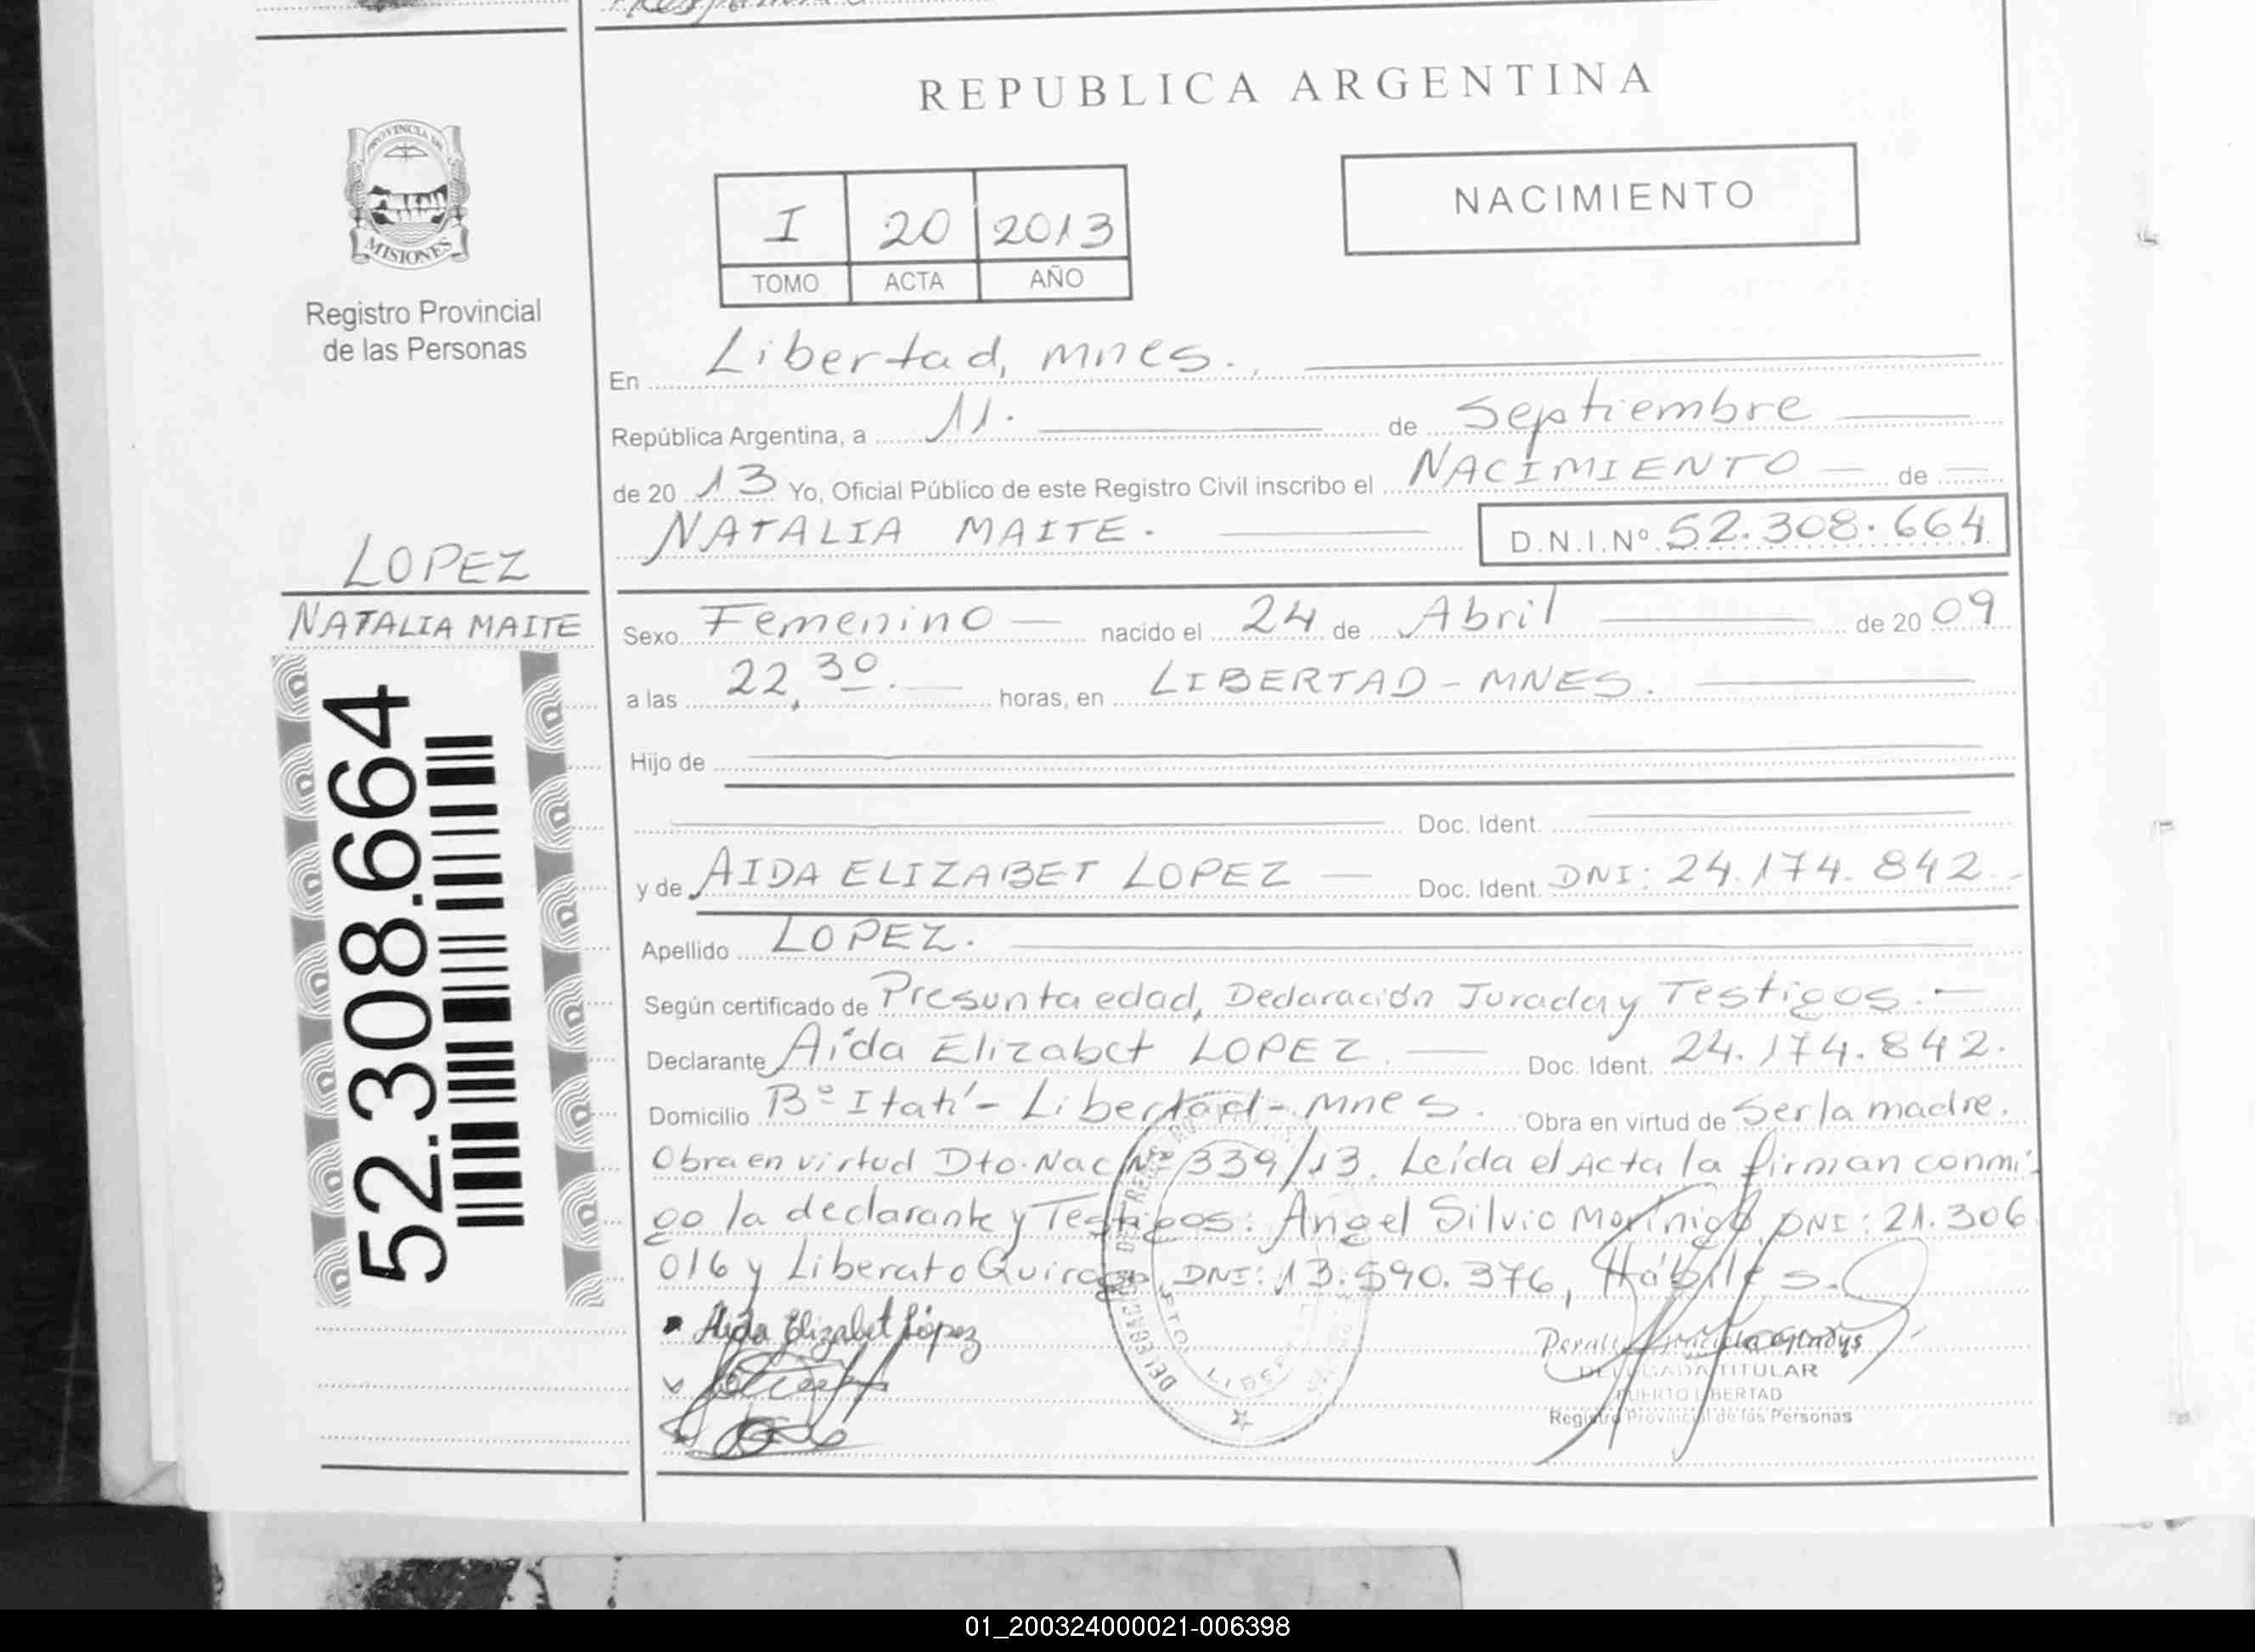 REPUBLICA ARGENTINA
PROVINCIA DE
MISIONES
Registro Provincial
de las Personas
I 20 2013
TOMO ACTA AÑO
NACIMIENTO
En Libertad, mnes.
República Argentina, a 11. de Septiembre
de 20 13 Yo, Oficial Público de este Registro Civil inscribo el NACIMIENTO de
NATALIA MAITE. D.N.I.Nº 52.308.664
LOPEZ
NATALIA MAITE
52.308.664
Sexo Femenino nacido el 24 de Abril de 20 09
a las 22,30. horas, en LIBERTAD - MNES.
Hijo de
Doc. Ident.
y de AIDA ELIZABET LOPEZ Doc. Ident. DNI: 24.174.842.-
Apellido LOPEZ.
Según certificado de Presunta edad, Declaración Jurada y Testigos.-
Declarante Aída Elizabet LOPEZ. Doc. Ident. 24.174.842.
Domicilio Bº Itatí - Libertad - Mnes. Obra en virtud de Ser la madre.
Obra en virtud Dto. Nac Nº 339/13. Leída el Acta la firman conmi-
go la declarante y Testigos: Angel Silvio Morínigo, DNI: 21.306.
016 y Liberato Quiroga, DNI: 13.590.376, Hábiles.
Aida Elizabet López
Gladys
DELEGADA TITULAR
PUERTO LIBERTAD
Registro Provincial de las Personas
01_200324000021-006398